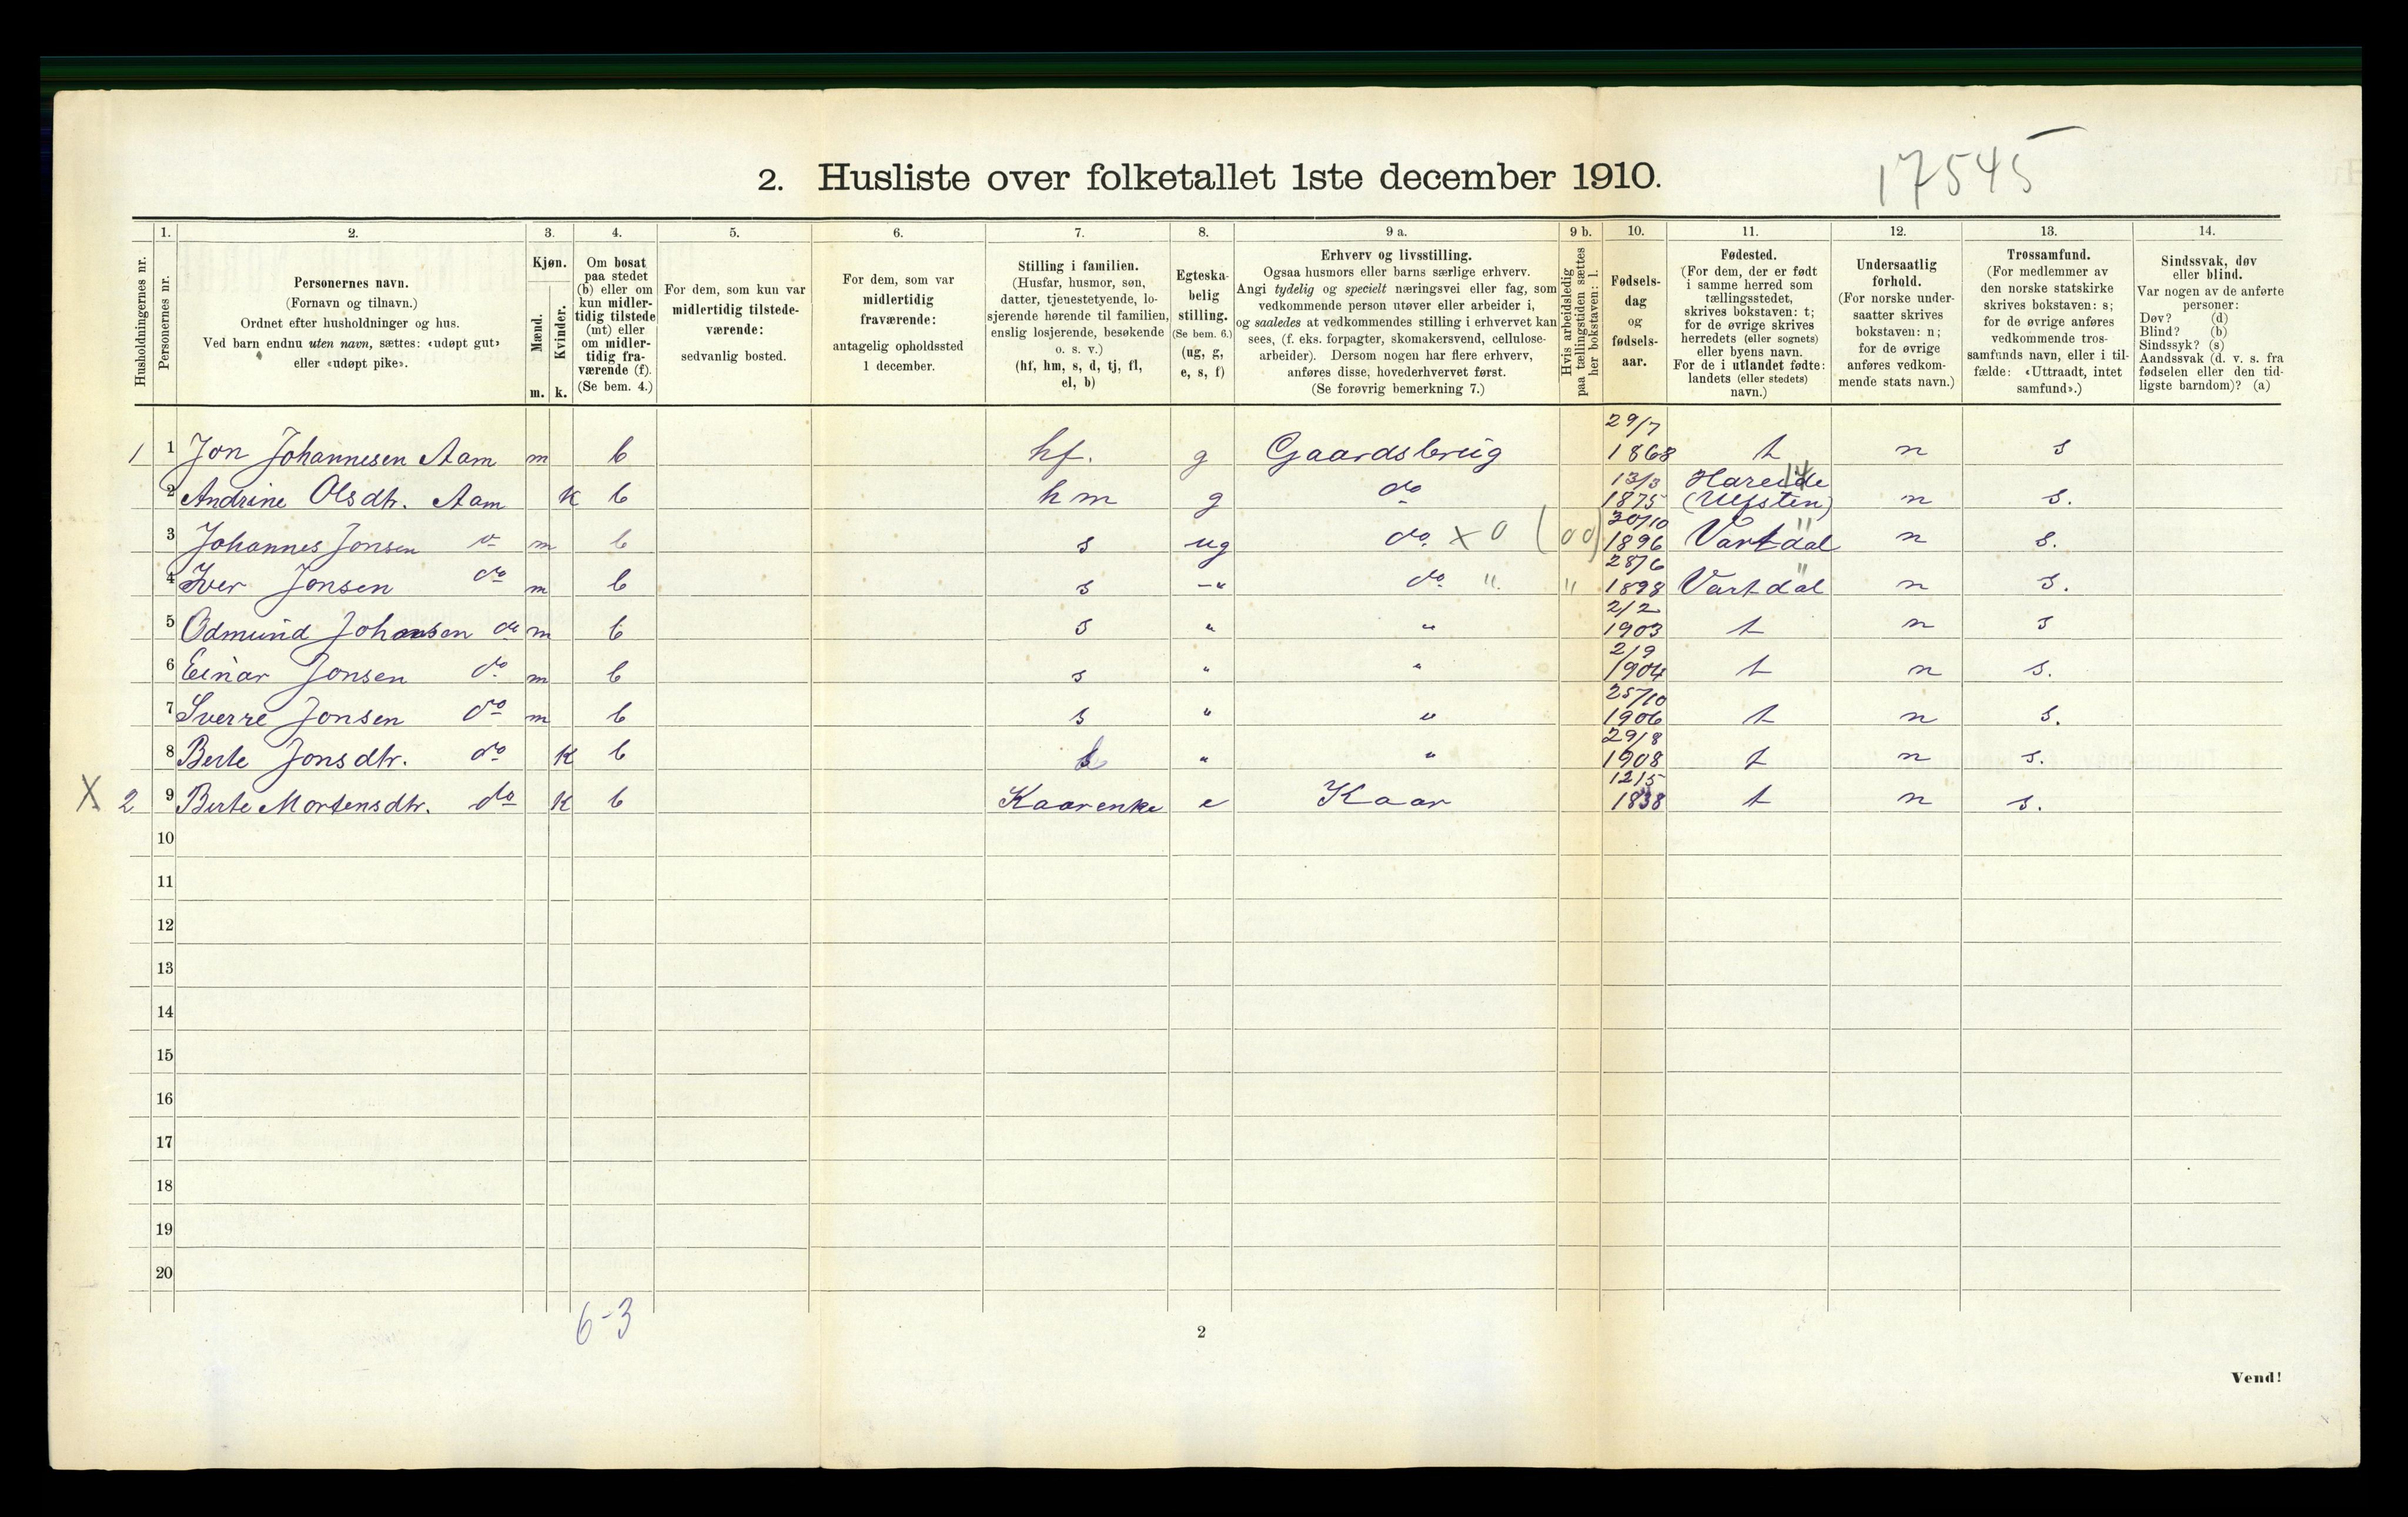 17545
2. Husliste over folketallet 1ste december 1910.
1. 2. 3. 4. 5. 6. 7. 8. 9 a. 9 b. 10. 11. 12. 13. 14.
Husholdningernes nr.
Personernes nr.
Personernes navn.
(Fornavn og tilnavn.)
Ordnet efter husholdninger og hus.
Ved barn endnu uten navn, sættes: «udøpt gut»
eller «udøpt pike».
Kjøn.
Mænd.
Kvinder.
m. k.
Om bosat
paa stedet
(b) eller om
kun midler-
tidig tilstede
(mt) eller
om midler-
tidig fra-
værende (f).
(Se bem. 4.)
For dem, som kun var
midlertidig tilstede-
værende:
sedvanlig bosted.
For dem, som var
midlertidig
fraværende:
antagelig opholdssted
1 december.
Stilling i familien.
(Husfar, husmor, søn,
datter, tjenestetyende, lo-
sjerende hørende til familien,
enslig losjerende, besøkende
o. s. v.)
(hf, hm, s, d, tj, fl,
el, b)
Egteska-
belig
stilling.
(Se bem. 6.)
(ug, g,
e, s, f)
Erhverv og livsstilling.
Ogsaa husmors eller barns særlige erhverv.
Angi tydelig og specielt næringsvei eller fag, som
vedkommende person utøver eller arbeider i,
og saaledes at vedkommendes stilling i erhvervet kan
sees, (f. eks. forpagter, skomakersvend, cellulose-
arbeider). Dersom nogen har flere erhverv,
anføres disse, hovederhvervet først.
(Se forøvrig bemerkning 7.)
Hvis arbeidsledig
paa tællingstiden sættes
her bokstaven: l.
Fødsels-
dag
og
fødsels-
aar.
Fødested.
(For dem, der er født
i samme herred som
tællingsstedet,
skrives bokstaven: t;
for de øvrige skrives
herredets (eller sognets)
eller byens navn.
For de i utlandet fødte:
landets (eller stedets)
navn.)
Undersaatlig
forhold.
(For norske under-
saatter skrives
bokstaven: n;
for de øvrige
anføres vedkom-
mende stats navn.)
Trossamfund.
(For medlemmer av
den norske statskirke
skrives bokstaven: s;
for de øvrige anføres
vedkommende tros-
samfunds navn, eller i til-
fælde: «Uttraadt, intet
samfund».)
Sindssvak, døv
eller blind.
Var nogen av de anførte
personer:
Døv? (d)
Blind? (b)
Sindssyk? (s)
Aandssvak (d. v. s. fra
fødselen eller den tid-
ligste barndom)? (a)
1 1 Jon Johannesen Aam m b hf. g Gaardsbrug 29/7 1868 t n s
2 Andrine Olsdtr. Aam k b hm g do 13/3 1875 Hareide (Ulfsten) 14 n s.
3 Johannes Jonsen do m b s ug do. x 0 (00) 30/10 1896 Vartdal " n s.
4 Iver Jonsen do m b s -" do " " 28/6 1898 Vartdal " n s.
5 Odmund Johansen do m b s " " 2/2 1903 t n s
6 Einar Jonsen do m b s " " 2/9 1904 t n s.
7 Sverre Jonsen do m b s " " 25/10 1906 t n s.
8 Berte Jonsdtr. do k b " " 29/8 1908 t n s.
X 2 9 Berte Mortensdtr. do k b Kaarenke e Kaar 12/5 1838 t n s.
10
11
12
13
14
15
16
17
18
19
20
6-3
2
Vend!